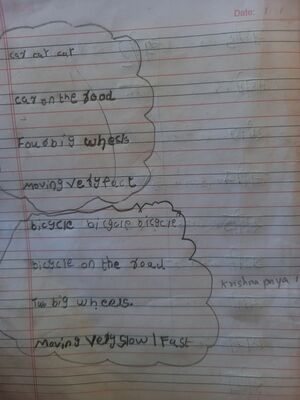 Date:
car car car
car on the road
Four big wheels
Moving very fact
bicycle bicycle bicycle
bicycle on the road
Two big wheels.
Moving very slow / Fast
Krishna priya